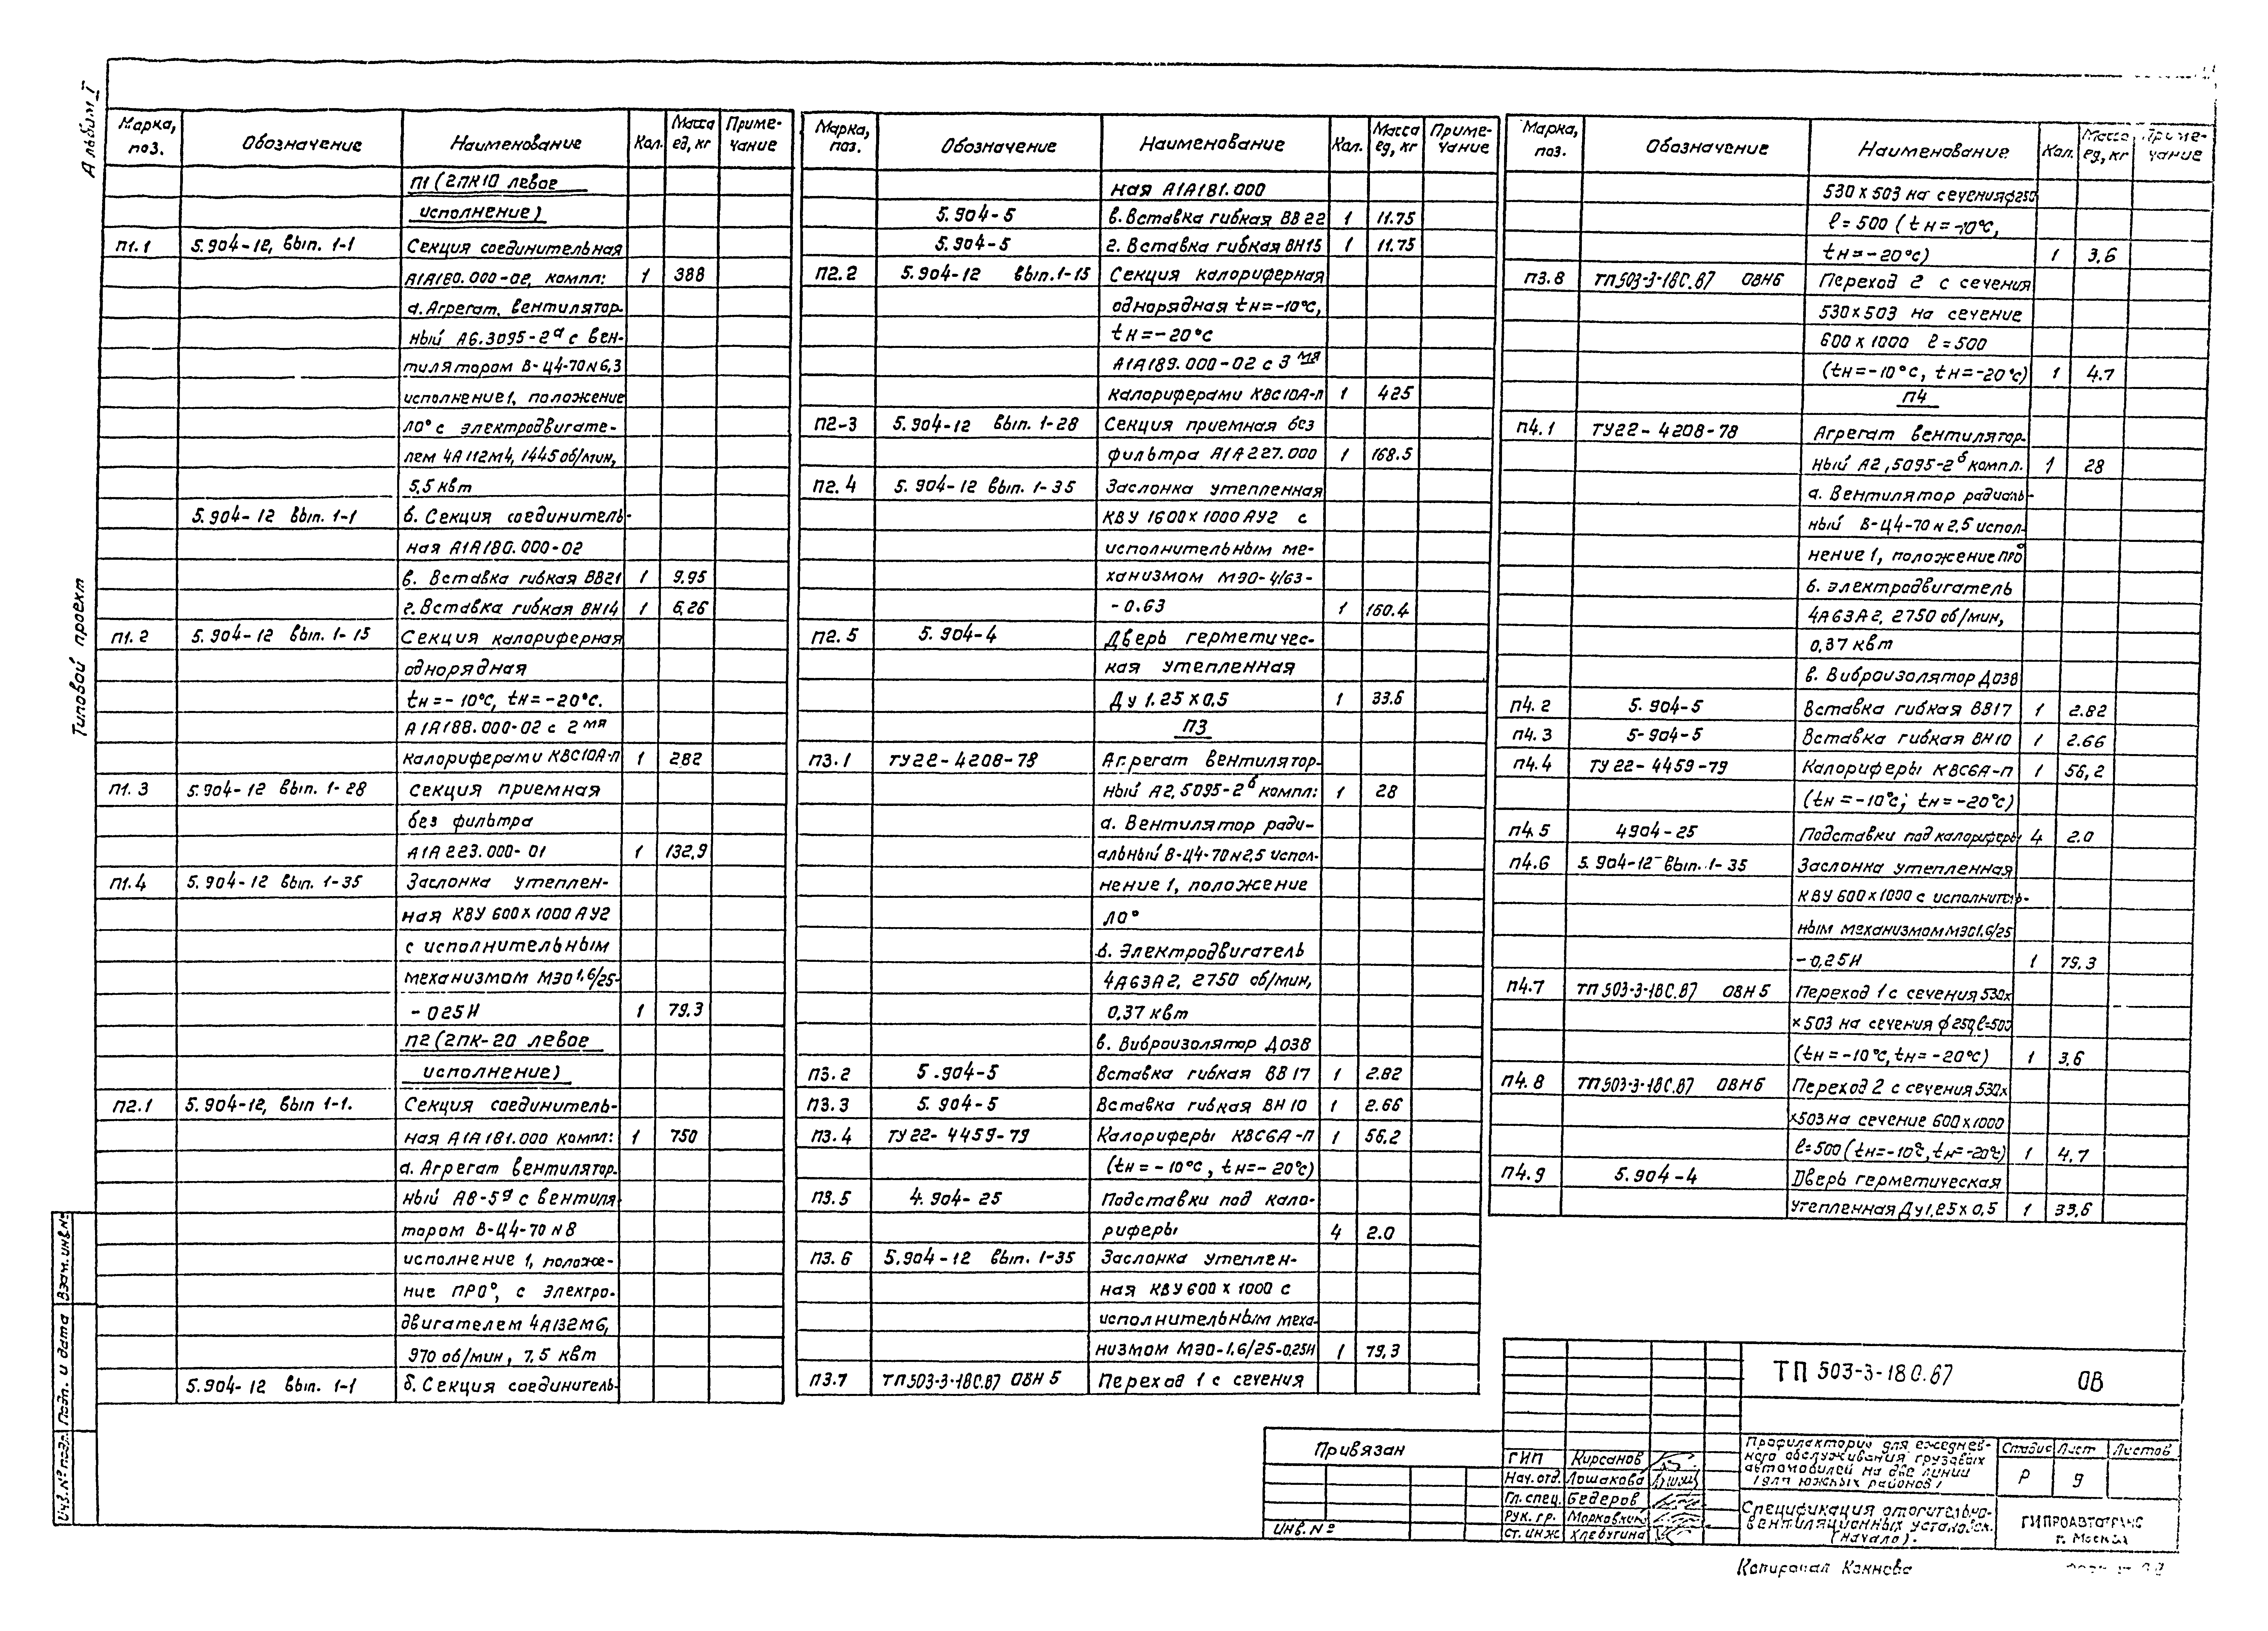 Альбом I
Типовой проект
Марка, поз. Обозначение Наименование Кол. Масса ед, кг Приме-чание
П1 (2ПК10 левое
исполнение)
П1.1 5.904-12, вып. 1-1 Секция соединительная
А1А180.000-02, компл: 1 388
а. Агрегат вентилятор-
ный А6.3095-2а с вен-
тилятором В-Ц4-70 N6,3
исполнение 1, положение
Л0° с электродвигате-
лем 4А112М4, 1445 об/мин,
5,5 квт
5.904-12 вып. 1-1 б. Секция соединитель-
ная А1А180.000-02
в. Вставка гибкая ВВ21 1 9.95
г. Вставка гибкая ВН14 1 6,26
П1.2 5.904-12 вып. 1-15 Секция калориферная
однорядная
tн=-10°С, tн=-20°С.
А1А188.000-02 с 2мя
калориферами КВС10А-П 1 282
П1.3 5.904-12 вып. 1-28 секция приемная
без фильтра
А1А223.000-01 1 132,9
П1.4 5.904-12 вып. 1-35 Заслонка утеплен-
ная КВУ 600х1000 АУ2
с исполнительным
механизмом МЭО 1,6/25-
-025И 1 79.3
П2 (2ПК-20 левое
исполнение)
П2.1 5.904-12, вып 1-1. Секция соединитель-
ная А1А181.000 компл: 1 750
а. Агрегат вентилятор-
ный А8-5д с вентиля
тором В-Ц4-70 N8
исполнение 1, положе-
ние ПР0°, с электро-
двигателем 4А132М6,
970 об/мин, 7,5 квт
5.904-12 вып. 1-1 б. Секция соединитель-
Марка, поз. Обозначение Наименование Кол. Масса ед, кг Приме-чание
ная А1А181.000
5.904-5 в. Вставка гибкая ВВ22 1 11.75
5.904-5 г. Вставка гибкая ВН15 1 11.75
П2.2 5.904-12 вып.1-15 Секция калориферная
однорядная tн=-10°С,
tн=-20°С
А1А189.000-02 с 3мя
калориферами КВС10А-П 1 425
П2-3 5.904-12 вып. 1-28 Секция приемная без
фильтра А1А227.000 1 168.5
П2.4 5.904-12 вып. 1-35 Заслонка утепленная
КВУ 1600х1000 АУ2 с
исполнительным ме-
ханизмом МЭО-4/63-
-0.63 1 160.4
П2.5 5.904-4 Дверь герметичес-
кая утепленная
Ду 1.25х0,5 1 33.6
П3
П3.1 ТУ22-4208-78 Агрегат вентилятор-
ный А2,5095-2б компл: 1 28
а. Вентилятор ради-
альный В-Ц4-70 N2,5 испол-
нение 1, положение
Л0°
б. Электродвигатель
4А63А2, 2750 об/мин,
0,37 квт
в. Виброизолятор Д038
П3.2 5.904-5 Вставка гибкая ВВ17 1 2.82
П3.3 5.904-5 Вставка гибкая ВН10 1 2.66
П3.4 ТУ22-4459-79 Калориферы КВС6А-П 1 56,2
(tн=-10°С, tн=-20°С)
П3.5 4.904-25 Подставки под кало-
риферы 4 2.0
П3.6 5.904-12 вып. 1-35 Заслонка утеплен-
ная КВУ 600х1000 с
исполнительным меха-
низмом МЭО-1,6/25-0,25И 1 79,3
П3.7 ТП503-3-18С.87 ОВН5 Переход 1 с сечения
Марка, поз. Обозначение Наименование Кол. Масса ед, кг Приме-чание
530х503 на сечения ф250
l=500 (tн=-10°С,
tн=-20°С) 1 3,6
П3.8 ТП503-3-18С.87 ОВН6 Переход 2 с сечения
530х503 на сечение
600х1000 l=500
(tн=-10°С, tн=-20°С) 1 4.7
П4
П4.1 ТУ22-4208-78 Агрегат вентилятор-
ный А2,5095-2б компл. 1 28
а. Вентилятор радиаль-
ный В-Ц4-70 N2,5 испол-
нение 1, положение ПР0°
б. электродвигатель
4А63А2, 2750 об/мин,
0,37 квт
в. Виброизолятор Д038
П4.2 5.904-5 Вставка гибкая ВВ17 1 2.82
П4.3 5-904-5 Вставка гибкая ВН10 1 2.66
П4.4 ТУ22-4459-79 Калориферы КВС6А-П 1 56,2
(tн=-10°С; tн=-20°С)
П4.5 4904-25 Подставки под калориферы 4 2.0
П4.6 5.904-12 вып. 1-35 Заслонка утепленная
КВУ 600х1000 с исполнитель-
ным механизмом МЭО1,6/25
-0,25И 1 79,3
П4.7 ТП503-3-18С.87 ОВН5 Переход 1 с сечения 530х
х503 на сечения ф250 l=500
(tн=-10°С, tн=-20°С) 1 3,6
П4.8 ТП503-3-18С.87 ОВН6 Переход 2 с сечения 530х
х503 на сечение 600х1000
l=500 (tн=-10°С, tн=-20°С) 1 4,7
П4.9 5.904-4 Дверь герметическая
утепленная Ду1,25х0,5 1 33,6
Взам. инв.№
Подп. и дата
Инв.№ подл.
Привязан
Инв.№
ТП 503-3-18С.87 ОВ
ГИП Кирсанов
Нач. отд. Лошакова
Гл. спец. Бедеров
Рук. гр.
Ст. инж Хлебугина
Профилакторий для ежеднев-
ного обслуживания грузовых
автомобилей на две линии
(для южных районов)
Стадия Лист Листов
Р 9
Спецификация отопительно-
вентиляционных установок.
(начало).
ГИПРОАВТОТРАНС
г. Москва
Копировал